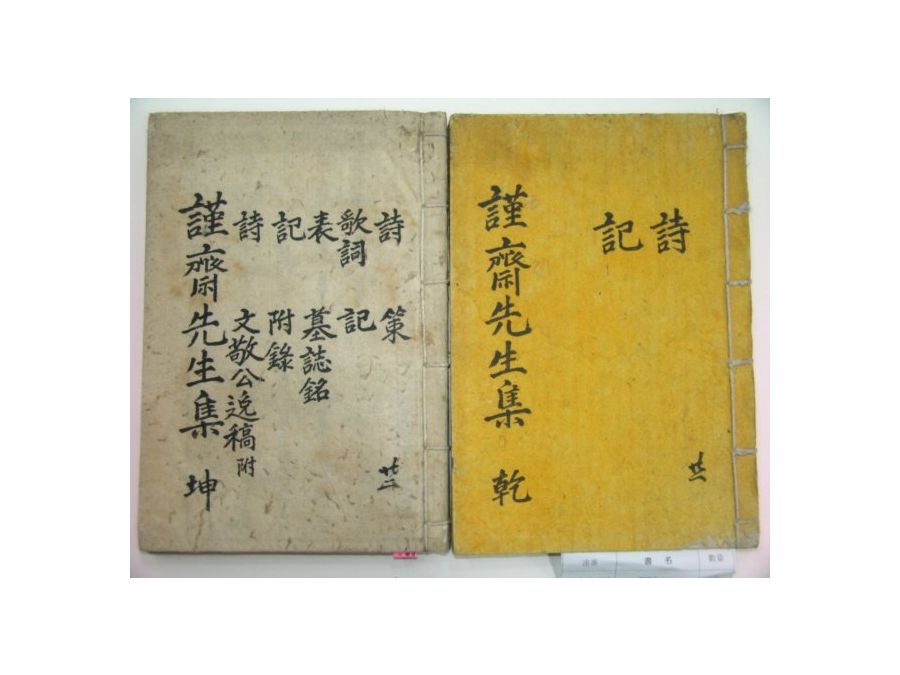 詩
記
謹齋先生集 乾
詩 策
歌詞 記
表 墓誌銘
記 附錄
詩 文敬公逸稿 附
謹齋先生集 坤
書 名